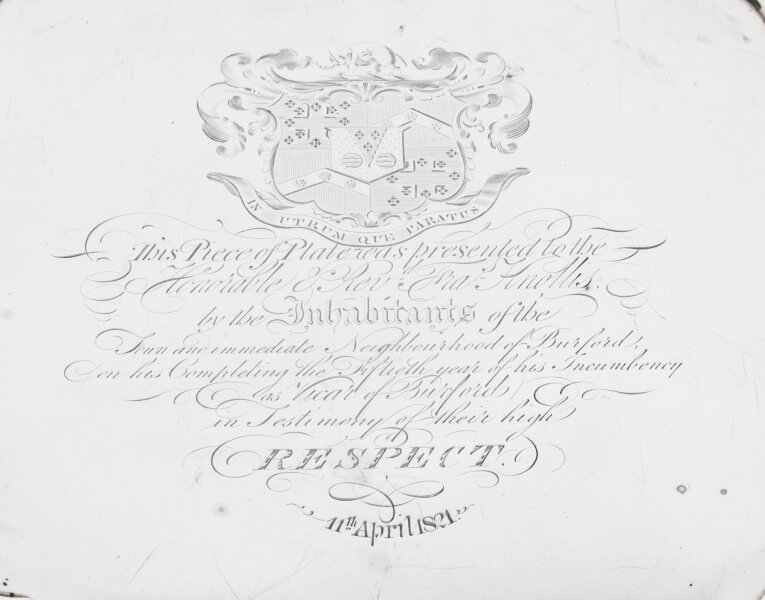 IN UTRUM QUE PARATUS
This Piece of Plate was presented to the
Honorable & Rev. Fra.s Knollis.
by the Inhabitants of the
Town and immediate Neighbourhood of Burford,
on his Completing the Fiftieth year of his Incumbency
as Vicar of Burford,
in Testimony of their high
RESPECT.
11th April 1821.